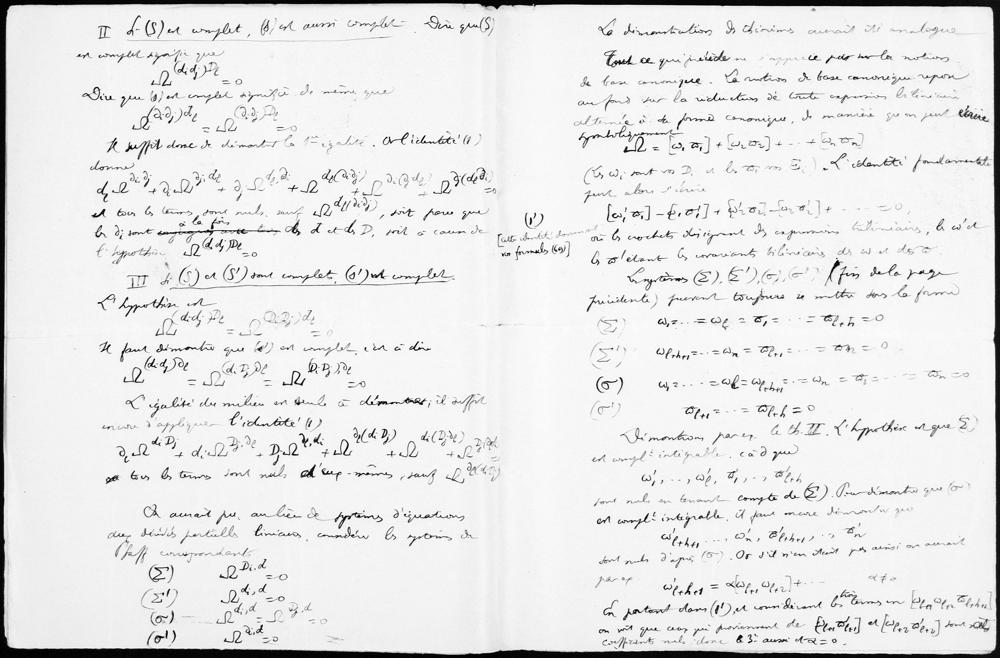 II Si (S) est complet, (s) est aussi complet. Dire que (S)
est complet signifie que
Ω^{(d_i d_j) D_l} = 0
Dire que (s) est complet signifie de même que
Ω^{(∂_i ∂_j) d_l} = Ω^{(∂_i ∂_j) D_l} = 0
Il suffit donc de démontrer la 1re égalité. Or l'identité (1)
donne
d_l Ω^{∂_i ∂_j} + ∂_i Ω^{∂_j d_l} + ∂_j Ω^{d_l ∂_i} + Ω^{d_l (∂_i ∂_j)} + Ω^{∂_i (∂_j d_l)} + Ω^{∂_j (d_l ∂_i)} = 0
et tous les termes sont nuls sauf Ω^{d_l (∂_i ∂_j)}, soit parce que
les ∂_i sont à la fois des d et des D, soit à cause de
l'hypothèse Ω^{(d_i d_j) D_l} = 0
III Si (S) et (S') sont complets, (s') est complet.
L'hypothèse est
Ω^{(d_i d_j) D_l} = Ω^{(D_i D_j) d_l} = 0
Il faut démontrer que (s') est complet, c'est à dire
Ω^{(d_i d_j) ∂_l} = Ω^{(d_i D_j) ∂_l} = Ω^{(D_i D_j) ∂_l} = 0
L'égalité du milieu est seule à démontrer; il suffit
encore d'appliquer l'identité (1)
∂_l Ω^{d_i D_j} + d_i Ω^{D_j ∂_l} + D_j Ω^{∂_l d_i} + Ω^{∂_l (d_i D_j)} + Ω^{d_i (D_j ∂_l)} + Ω^{D_j (∂_l d_i)} = 0
tous les termes sont nuls d'eux-mêmes, sauf Ω^{∂_l (d_i D_j)}
On aurait pu, au lieu de systèmes d'équations
aux dérivées partielles linéaires, considérer les systèmes de
Pfaff correspondants
(Σ) Ω^{D_i, d} = 0
(Σ') Ω^{d_i, d} = 0
(σ) Ω^{d_i, d} = Ω^{D_i, d} = 0
(σ') Ω^{∂_i, d} = 0
La démonstration des théorèmes aurait été analogue
Tout ce qui précède ne s'appuie pas sur la notion
de base canonique. La notion de base canonique repose
au fond sur la réduction de toute expression bilinéaire
alternée à sa forme canonique, de manière qu'on peut écrire
symboliquement
Ω = [ω_1 ϖ_1] + [ω_2 ϖ_2] + ... + [ω_n ϖ_n]
(les ω_i sont vos D_i et les ϖ_i vos Ξ_i). L'identité fondamentale
peut alors s'écrire
(1') [ω'_1 ϖ_1] - [ω_1 ϖ'_1] + [ω'_2 ϖ_2] - [ω_2 ϖ'_2] + ...... = 0
[cette identité donnerait
vos formules (69)]
où les crochets désignent des expressions trilinéaires, les ω' et
les ϖ' étant les covariants bilinéaires des ω et des ϖ.
Les systèmes (Σ), (Σ'), (σ), (σ') (fin de la page
précédente) peuvent toujours se mettre sous la forme
(Σ) ω_1 = ... = ω_l = ϖ_1 = ... = ϖ_{l+h} = 0
(Σ') ω_{l+h+1} = ... = ω_n = ϖ_{l+1} = ... = ϖ_n = 0
(σ) ω_1 = ... = ω_l = ω_{l+h+1} = ... = ω_n = ϖ_1 = ... = ϖ_n = 0
(σ') ϖ_{l+1} = ... = ϖ_{l+h} = 0
Démontrons par ex. le th. II. L'hypothèse est que (Σ)
est complt intégrable, c à d que
ω'_1, ..., ω'_l, ϖ'_1, ..., ϖ'_{l+h}
sont nuls en tenant compte de (Σ). Pour démontrer que (σ)
est complt intégrable, il faut encore démontrer que
ω'_{l+h+1}, ..., ω'_n, ϖ'_{l+h+1}, ..., ϖ'_n
sont nuls d'après (σ). Or s'il n'en était pas ainsi on aurait
par ex
ω'_{l+h+1} = α[ω_{l+1} ω_{l+2}] + ... α ≠ 0
En portant dans (1') et considérant les termes en [ω_{l+1} ω_{l+2} ϖ_{l+h+1}]
on voit que ceux qui proviennent de [ω_{l+1} ϖ'_{l+1}] et [ω_{l+2} ϖ'_{l+2}] sont nuls
coefficients nuls donc le 3e aussi et α = 0.